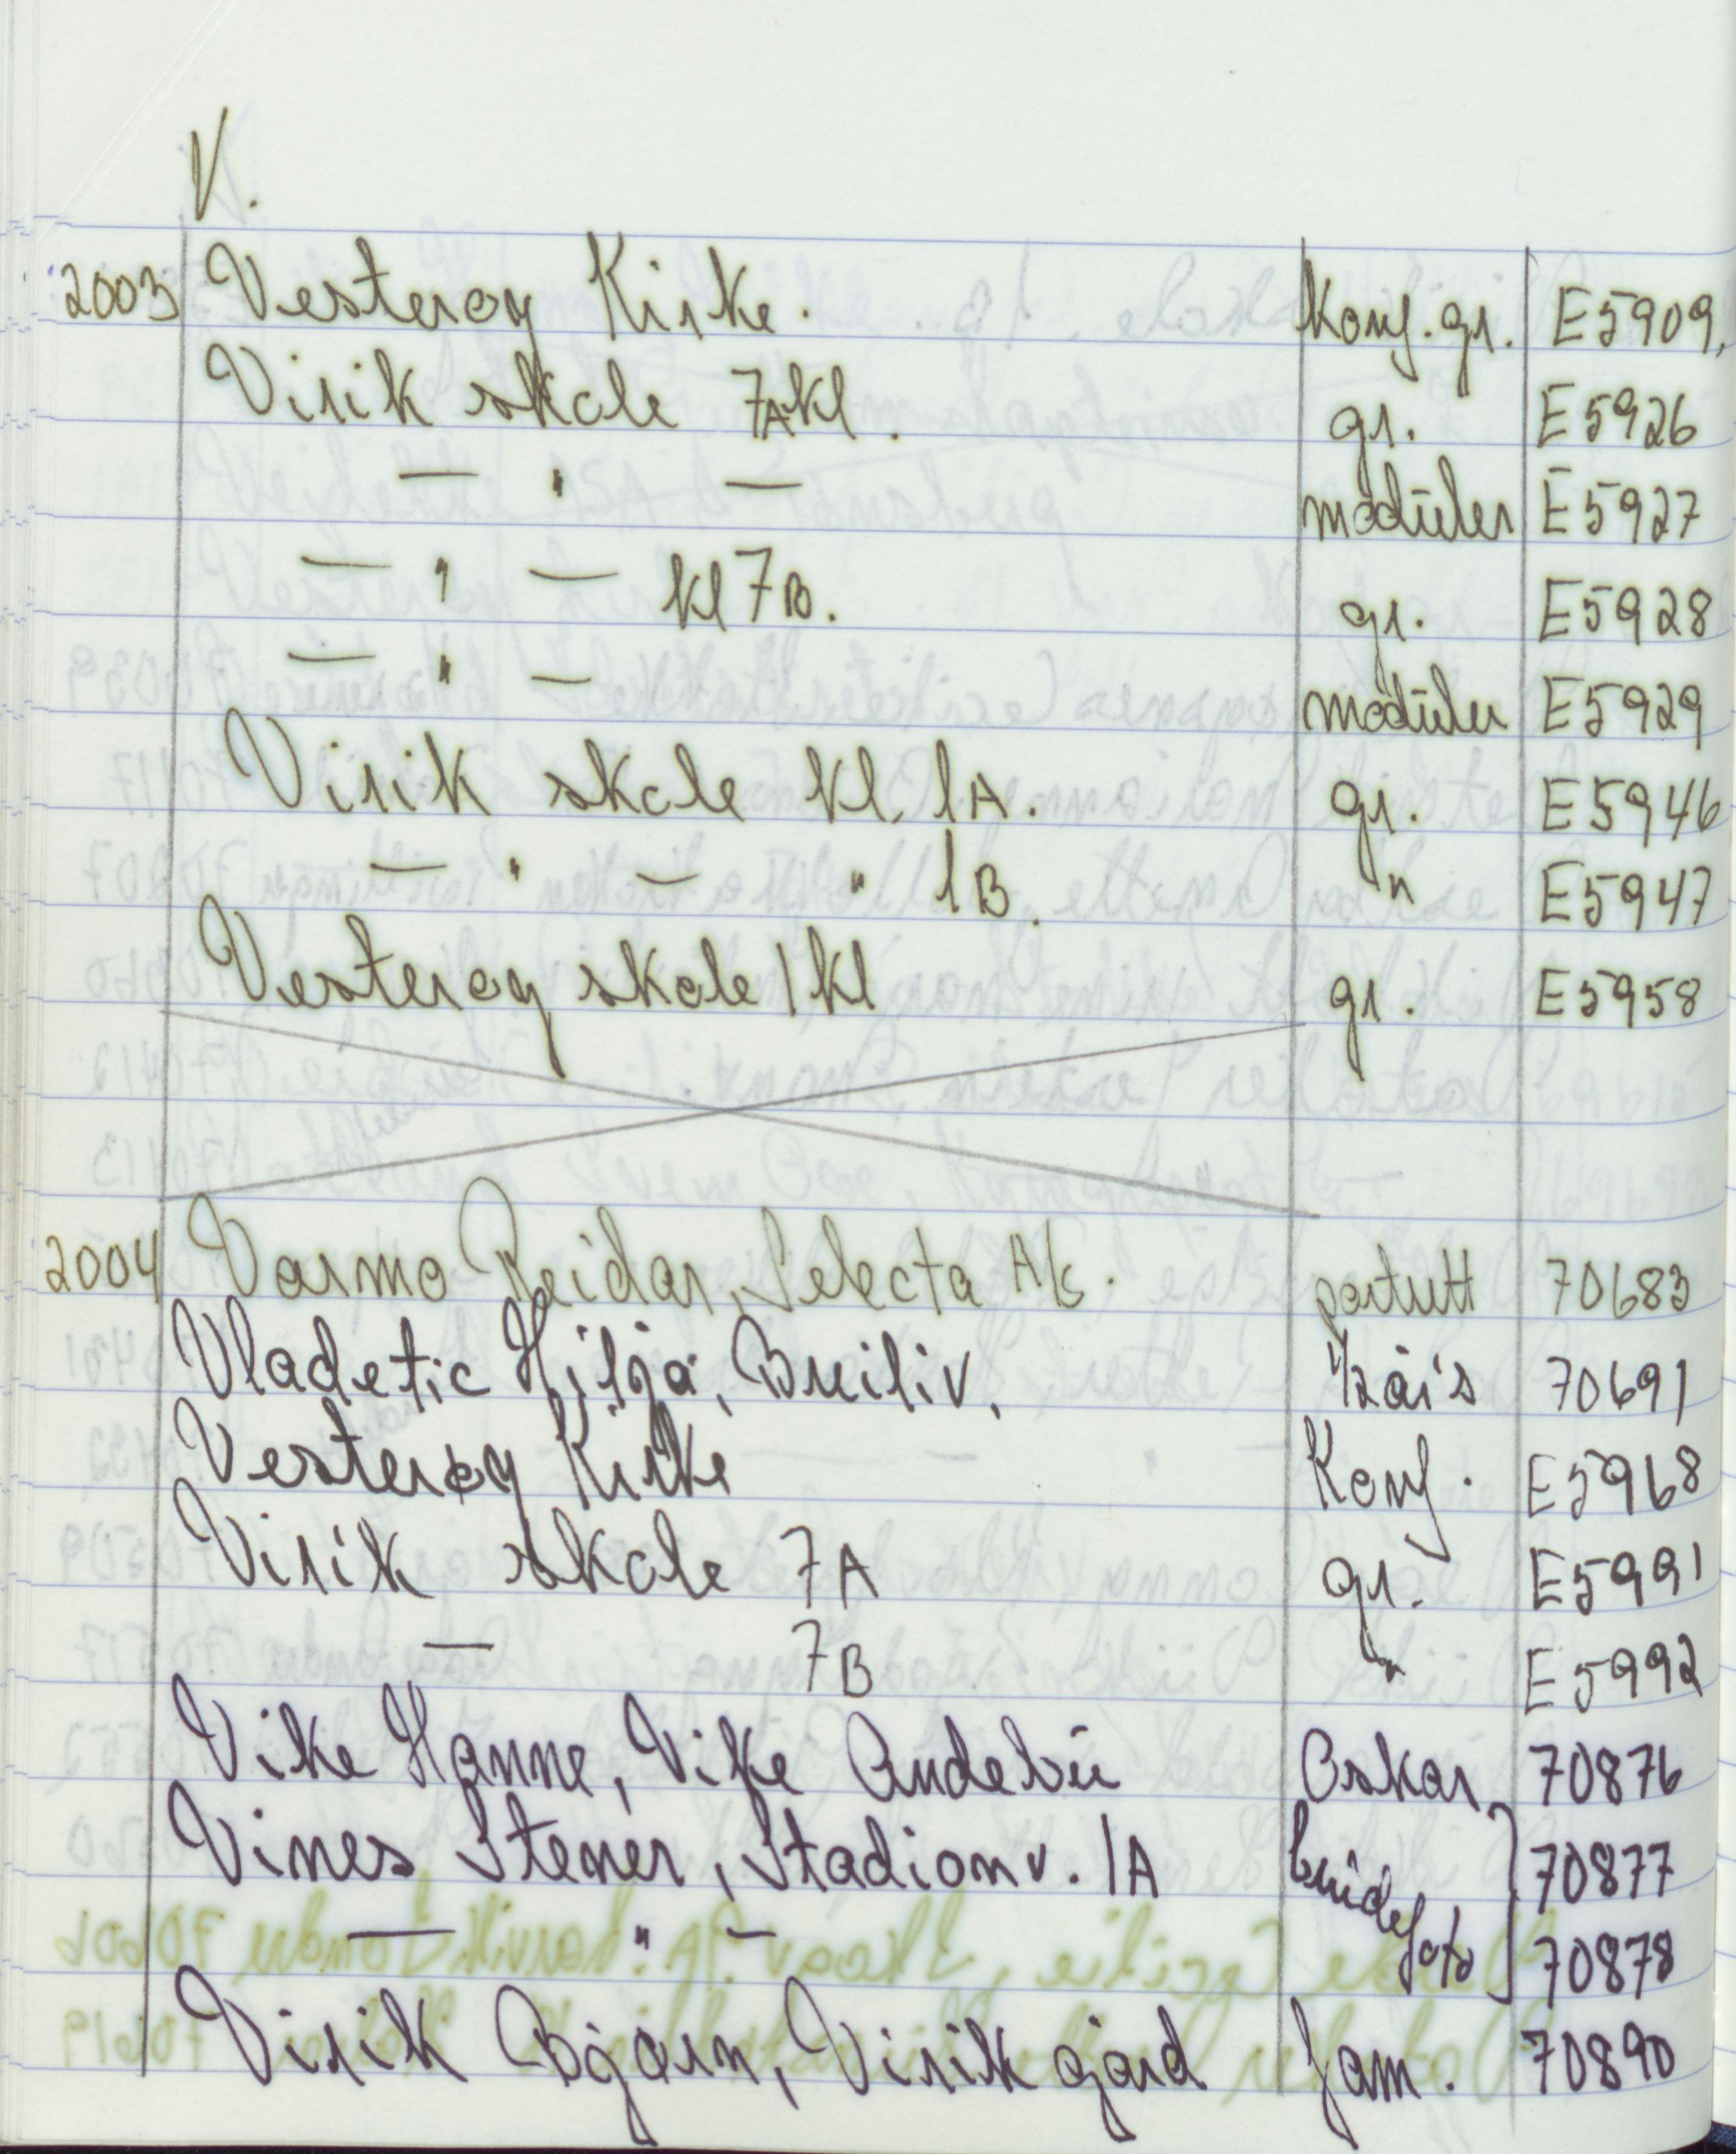 V.
2003 Vesterøy Kirke. Konf. gr. E5909,
Virik skole 7A kl. gr. E5926
— " — modüler E5927
— " — kl 7B. gr. E5928
— " — modüler E5929
Virik skole kl. 1A. gr. E5946
— " — " 1B. " E5947
Vesterøy skole 1 kl gr. E5958
2004 Varmo Reidar, Selecta A/s. portrett 70683
Vladetic Hilja, Breiliv, 1/2 år's 70691
Vesterøy Kirke Konf. E5968
Virik skole 7A gr. E5991
— 7B " E5992
Vike Hanne, Vike Andebü Oskar, 70876
Vines Stener, Stadionv. 1A brudefoto 70877
— " — 70878
Virik Bjørn, Virik gård fam. 70890